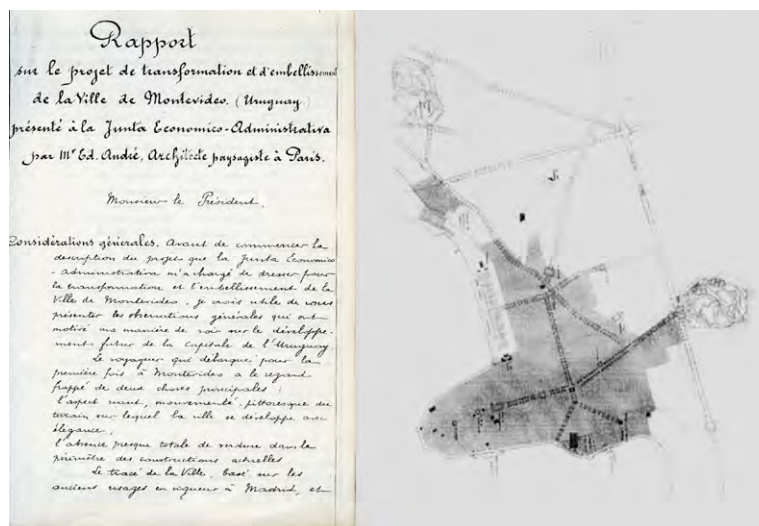 Rapport
sur le projet de transformation et d'embellissement
de la Ville de Montevideo. (Uruguay.)
présenté à la Junta Economico-Administrativa
par Mr Ed. André, Architecte paysagiste à Paris.
Monsieur le Président,
Considérations générales. Avant de commencer la
description du projet que la Junta Economico
-administrativa m'a chargé de dresser pour
la transformation et l'embellissement de la
Ville de Montevideo, je crois utile de vous
présenter les observations générales qui ont
motivé ma manière de voir sur le développe-
ment futur de la capitale de l'Uruguay.
Le voyageur qui débarque pour la
première fois à Montevideo a le regard
frappé de deux choses principales :
l'aspect mouvementé, pittoresque du
terrain sur lequel la ville se développe avec
élégance ;
l'absence presque totale de verdure dans le
périmètre des constructions actuelles.
Le tracé de la Ville, basé sur les
anciens usages en vigueur à Madrid, et